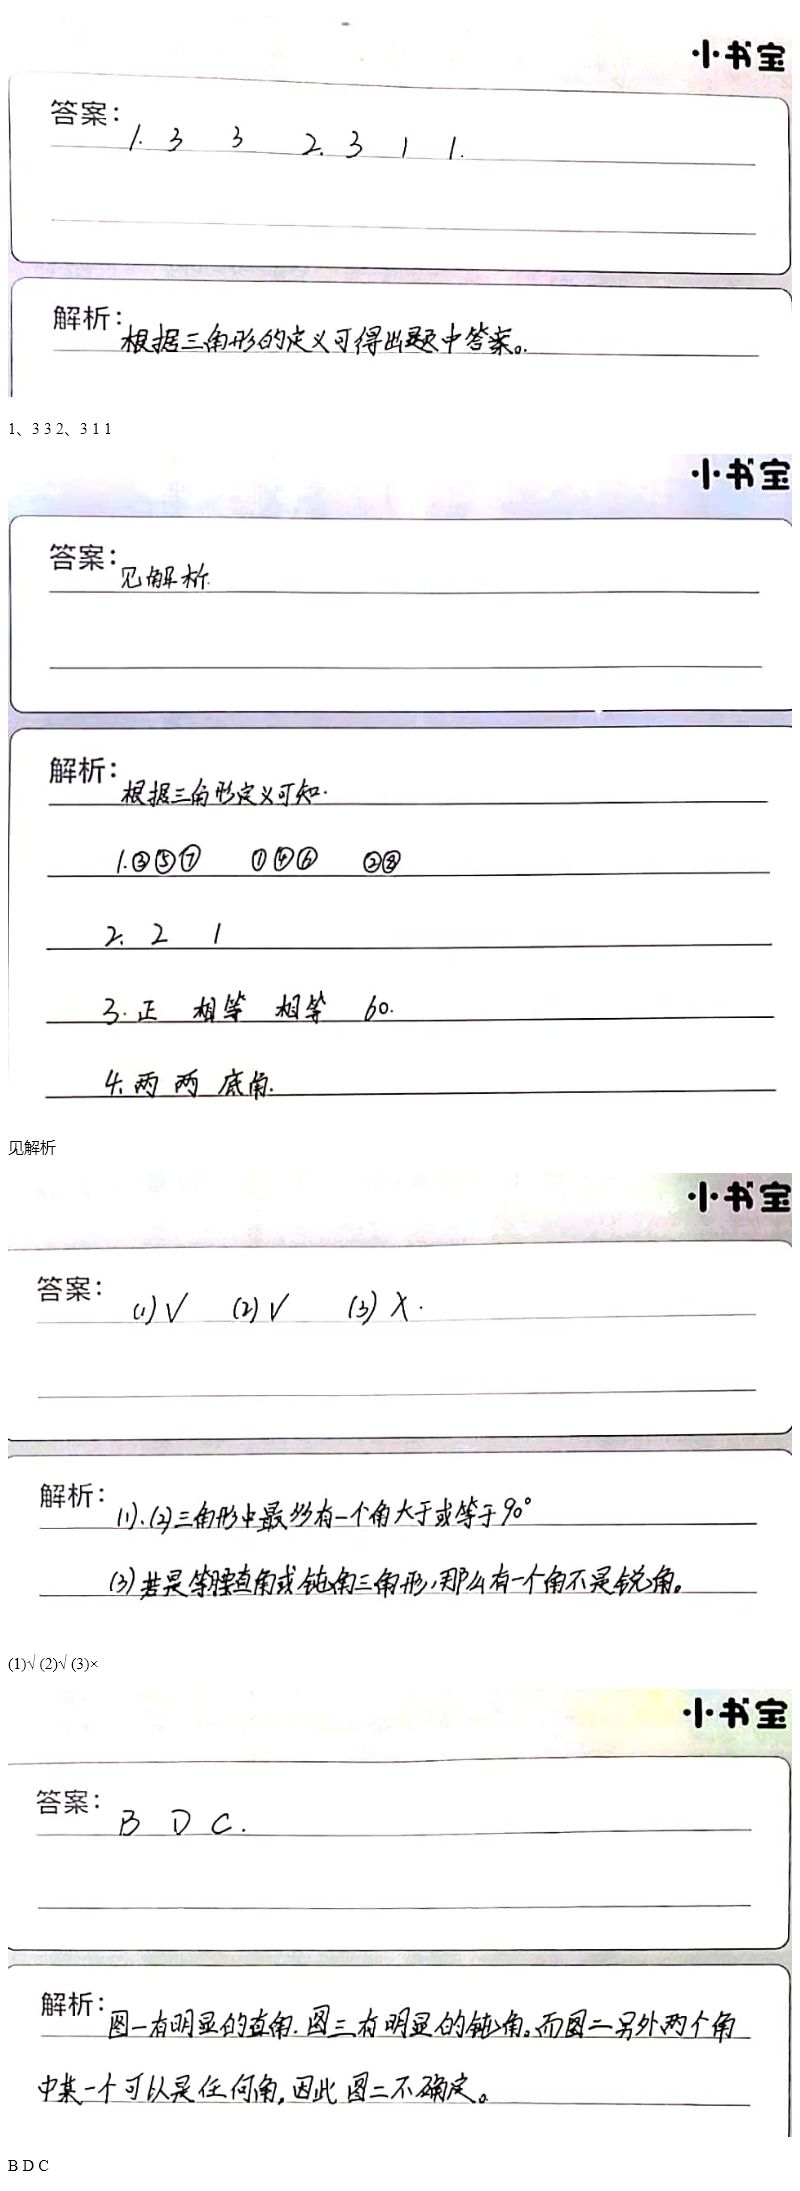 小书宝
答案：1. 3 3 2. 3 1 1.
解析：根据三角形的定义可得出题中答案。
1、3 3 2、3 1 1
小书宝
答案：见解析.
解析：根据三角形定义可知.
1.③⑤⑦ ①④⑥ ②⑧
2. 2 1
3.正 相等 相等 60.
4.两 两 底角.
见解析
小书宝
答案：(1)√ (2)√ (3)×.
解析：(1).(2)三角形中最多有一个角大于或等于90°
(3)若是等腰直角或钝角三角形,那么有一个角不是锐角。
(1)√ (2)√ (3)×
小书宝
答案：B D C.
解析：图一有明显的直角.图三有明显的钝角。而图二另外两个角
中某一个可以是任何角,因此图二不确定。
B D C